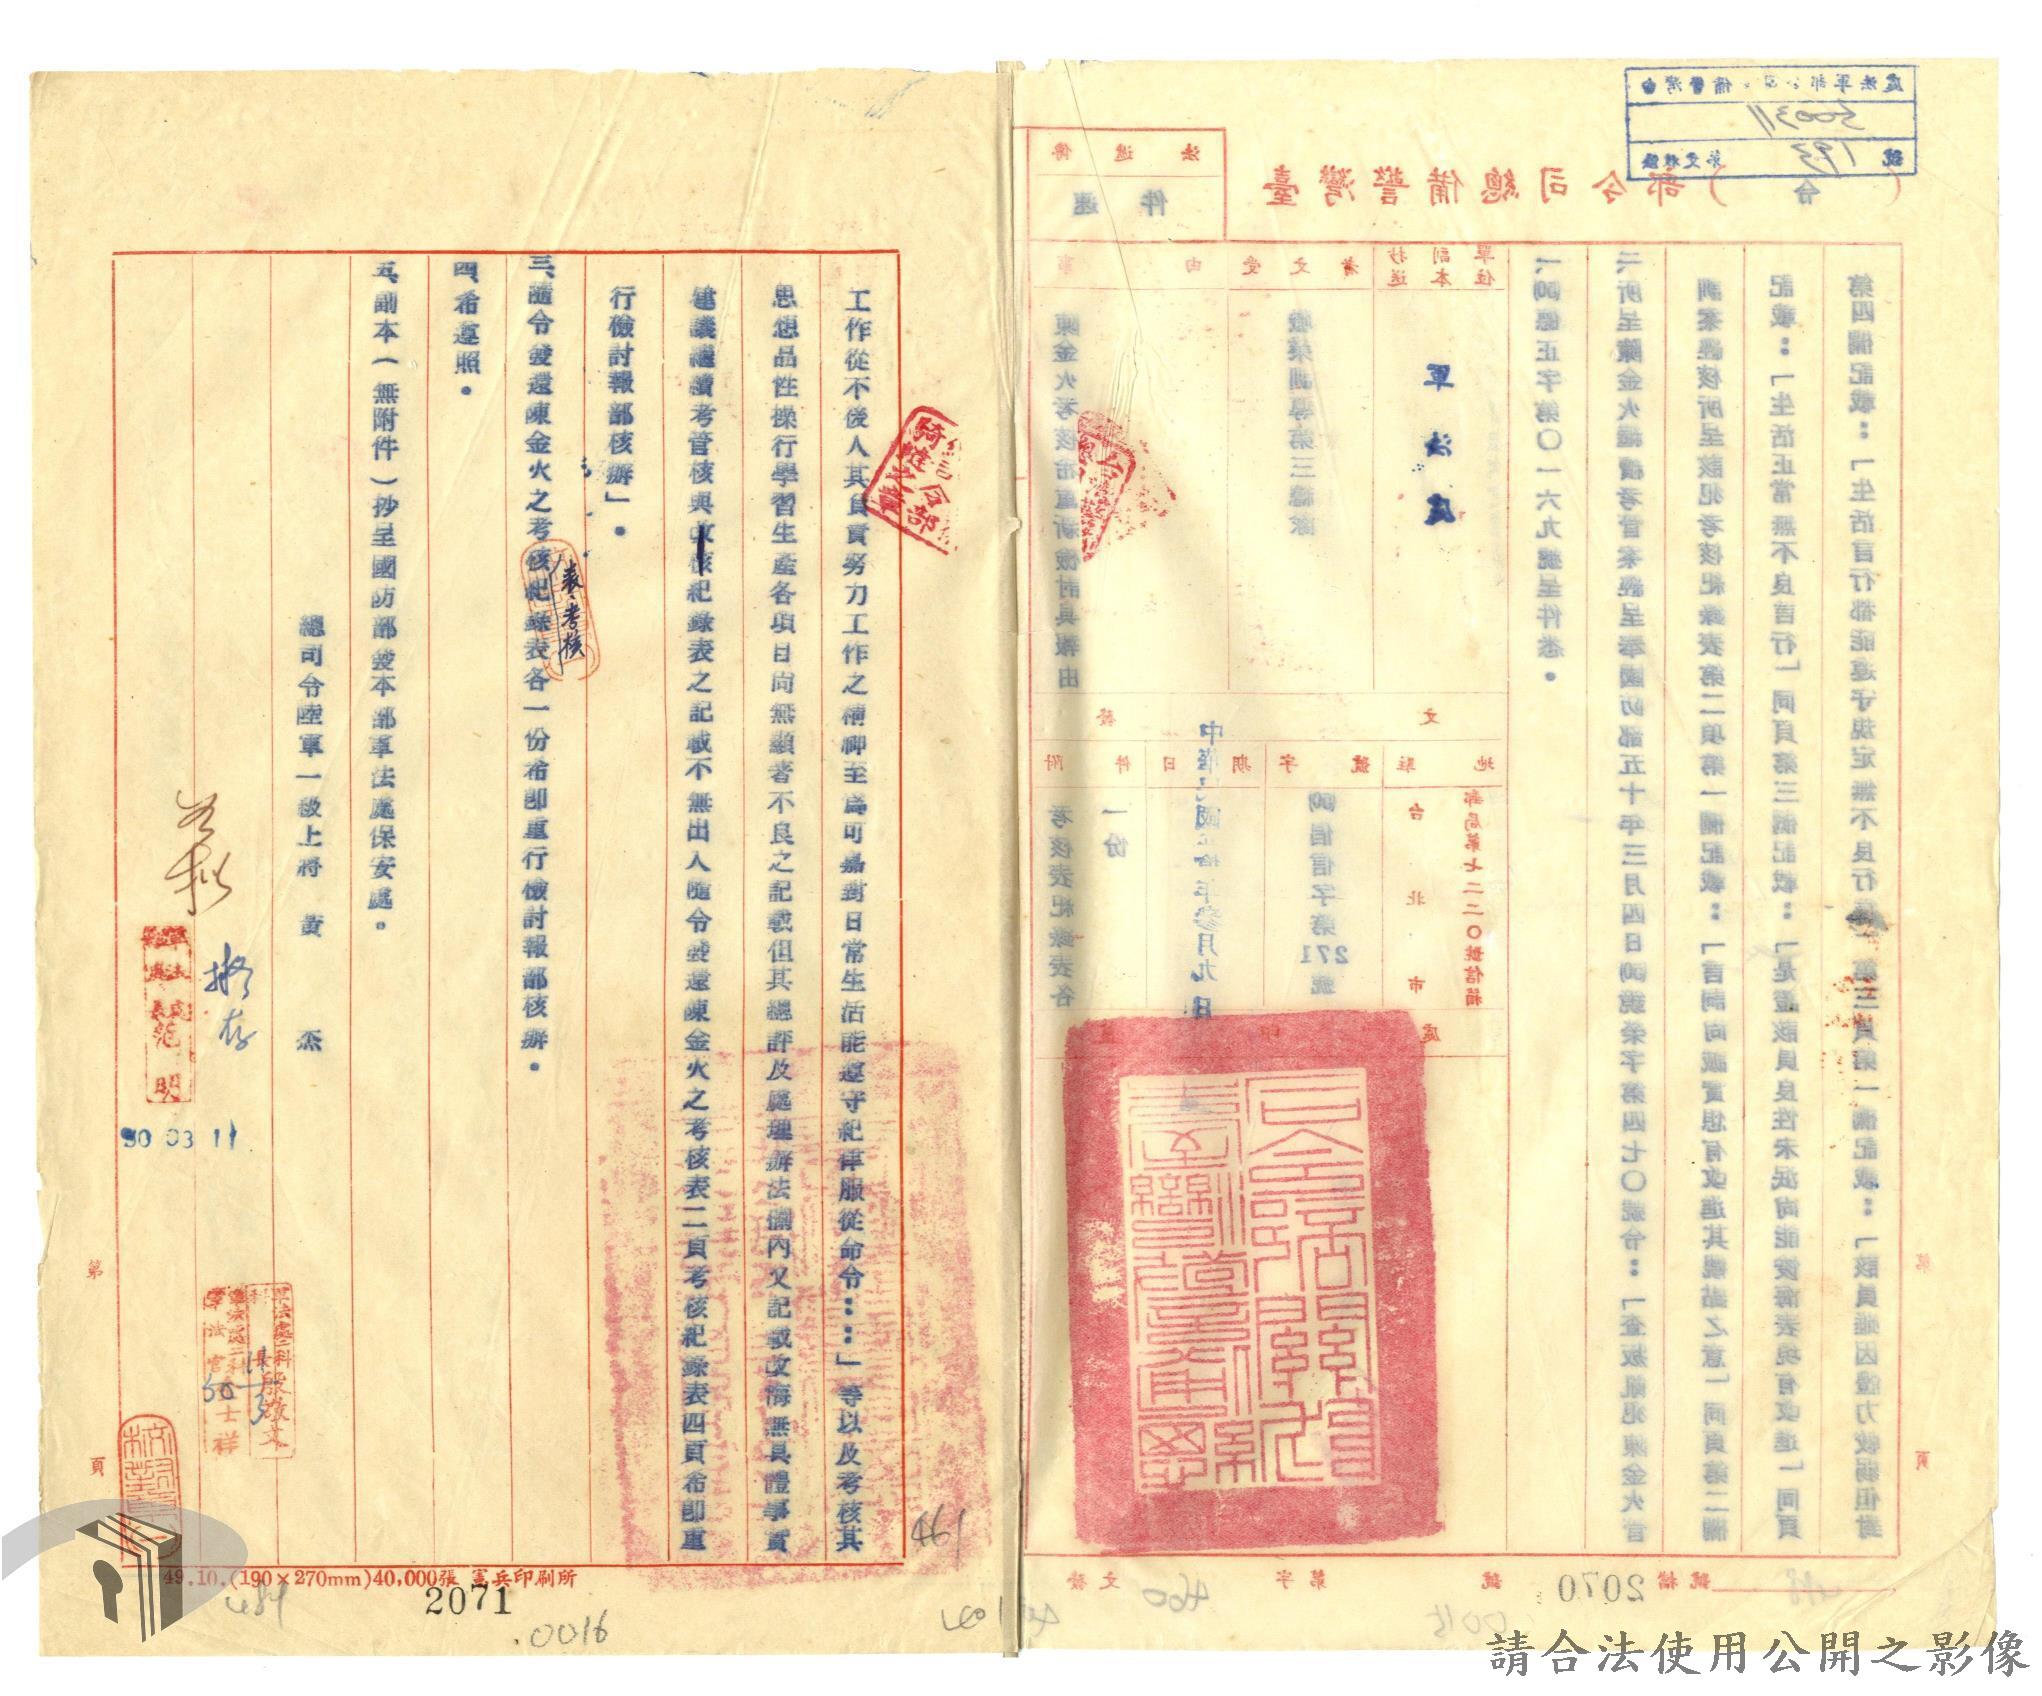 臺灣警備總司令部（令）
台灣警備總司令部軍法處
500311
收文
號
速件
受文者
嘅榮訓導第三總隊
副本抄送單位
軍法處
事由
陳金火考核希重新檢討具報由
發文
附件
考核表紀錄表各一份
日期
中華民國五拾年參月九日
字號
271號
駐地
台北市
郵局第七二二〇號信箱
二、所呈陳金火繼續考管案經呈奉國防部五十年三月四日
令：「查叛亂犯陳金火管
訓案經核所呈該犯考核紀錄表第二項第一欄記載：「言詞尚誠實思想有改進其觀點之意」同頁第二欄
記載：「生活正常無不良言行」同頁第三欄記載：「是證該員良性未泯尚能後悔表現有改進」同頁
第四欄記載：「生活言行都能遵守規定無不良行為」第三頁第一欄記載：「該員雖因體力較弱但對
2070
0015
460
工作從不後人其負責努力工作之精神至為可嘉對日常生活能遵守紀律服從命令……」等以及考核其
思想品性操行學習生產各項目尚無顯著不良之記載但其總評及處理辦法欄內又記載改悔無具體事實
建議繼續考管核與考核紀錄表之記載不無出入隨令發還陳金火之考核表二頁考核紀錄表四頁希即重
行檢討報部核辦」。
三、隨令發還陳金火之考核表、考核紀錄表各一份希即重行檢討報部核辦。
四、希遵照。
五、副本（無附件）抄呈國防部發本部軍法處保安處。
總司令陸軍一級上將 黃 杰
擬存
50 03 11
第 頁
461
49.10.(190×270mm)40,000張 憲兵印刷所
2071
0016
請合法使用公開之影像